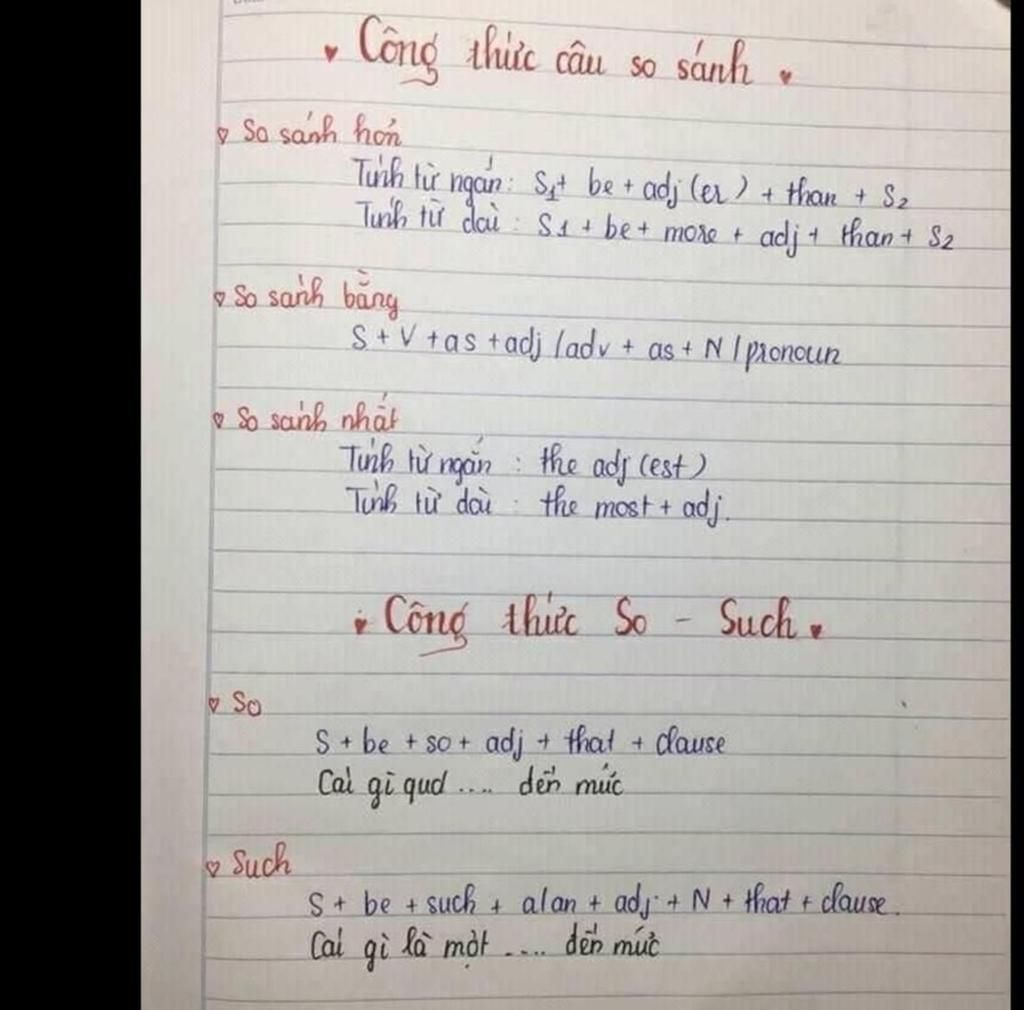 Công thức câu so sánh
So sánh hơn
Tính từ ngắn: S1+ be + adj (er) + than + S2
Tính từ dài : S1 + be + more + adj + than + S2
So sánh bằng
S + V + as + adj / adv + as + N / pronoun
So sánh nhất
Tính từ ngắn : the adj (est)
Tính từ dài : the most + adj.
Công thức So - Such
So
S + be + so + adj + that + clause
Cái gì quá .... đến mức
Such
S + be + such + a/an + adj + N + that + clause.
Cái gì là một .... đến mức